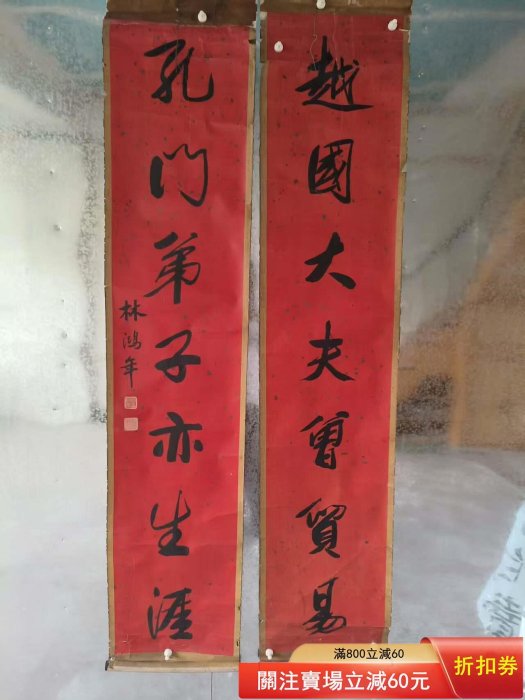 越國大夫曾貿易
孔門弟子亦生涯
林鴻年
滿800立減60
關注賣場立減60元
折扣券